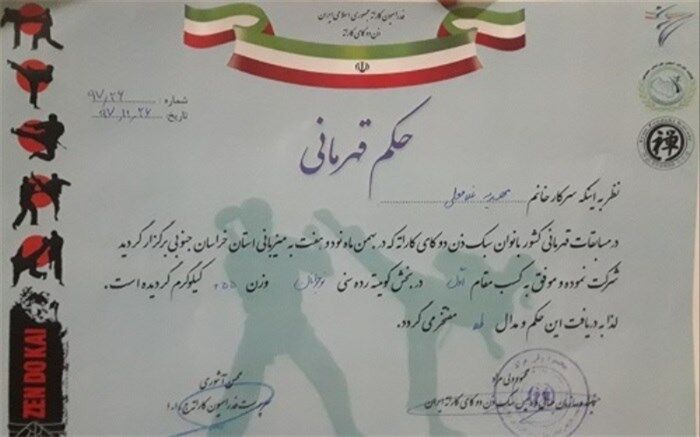 فدراسیون کاراته جمهوری اسلامی ایران
ذن دو کای کاراته
شماره: ۹۷٫۲۶
تاریخ: ۹۷٫۱۱٫۲۶
حکم قهرمانی
نظر به اینکه سرکار خانم مهدیه غلامعلی
در مسابقات قهرمانی کشور بانوان سبک ذن دو کای کاراته که در بهمن ماه نود و هفت به میزبانی استان خراسان جنوبی برگزار گردید
شرکت نموده و موفق به کسب مقام اول در بخش کومیته رده سنی نوجوانان وزن کیلوگرم گردیده است.
لذا به دریافت این حکم و مدال طلا مفتخر می گردد.
محسن آشوری
سرپرست فدراسیون کاراته ج.ا.ا
محمود ولی مراد
سبک ذن دو کای کاراته ایران
ZEN DO KAI
禅